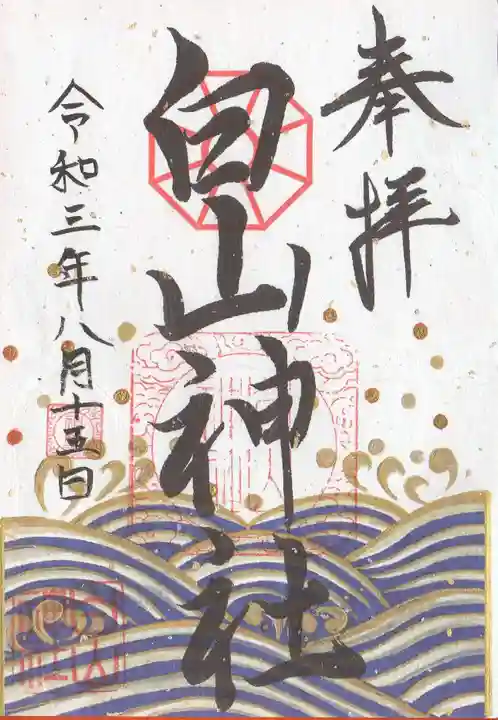 奉拝
白山神社
令和三年八月十五日